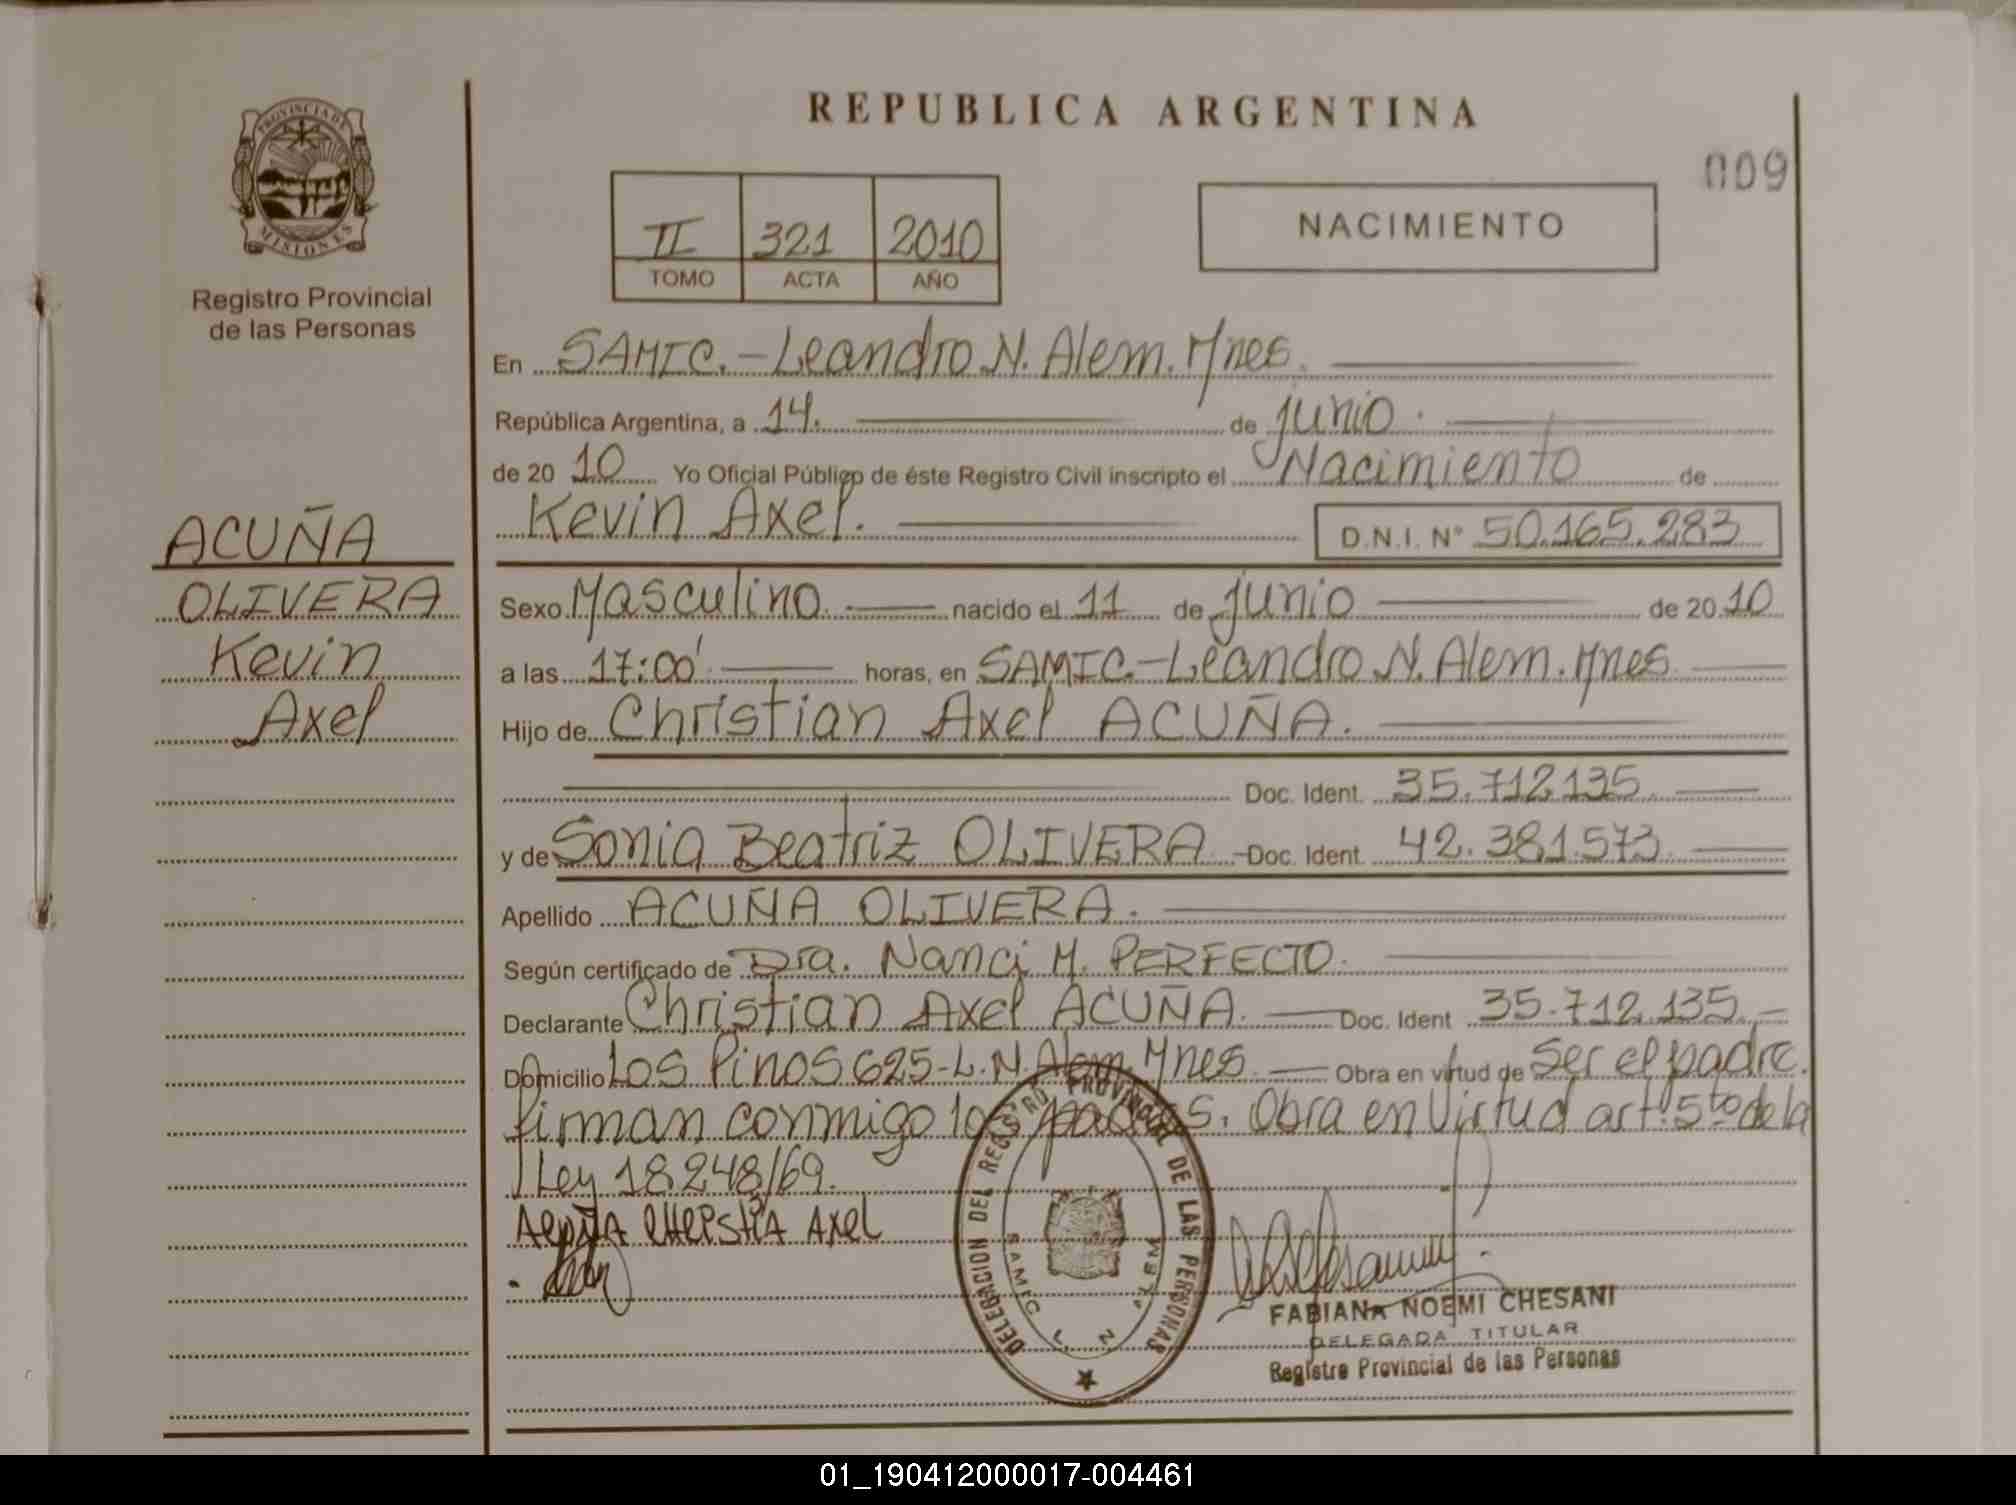 REPUBLICA ARGENTINA
009
PROVINCIA DE
MISIONES
Registro Provincial
de las Personas
II 321 2010
TOMO ACTA AÑO
NACIMIENTO
En SAMIC.-Leandro N. Alem. Mnes.
República Argentina, a 14. de junio.
de 20 10 Yo Oficial Público de éste Registro Civil inscripto el Nacimiento de
Kevin Axel. D.N.I. Nº 50.165.283
ACUÑA
OLIVERA
Kevin
Axel
Sexo Masculino. nacido el 11 de junio de 20 10
a las 17:00' horas, en SAMIC.-Leandro N. Alem. Mnes.
Hijo de Christian Axel ACUÑA.
Doc. Ident. 35.712.135.
y de Sonia Beatriz OLIVERA - Doc. Ident. 42.381.573.
Apellido ACUÑA OLIVERA.
Según certificado de Dra. Nanci M. PERFECTO.
Declarante Christian Axel ACUÑA. Doc. Ident 35.712.135.-
Domicilio Los Pinos 625-L.N.Alem. Mnes. Obra en virtud de Ser el padre.
firman conmigo los padres. Obra en Virtud art. 5to de la
Ley 18.248/69.
Axel
DELEGACION DEL REGISTRO PROVINCIAL DE LAS PERSONAS
SAMIC L. N. ALEM
FABIANA NOEMI CHESANI
DELEGADA TITULAR
Registro Provincial de las Personas
01_190412000017-004461